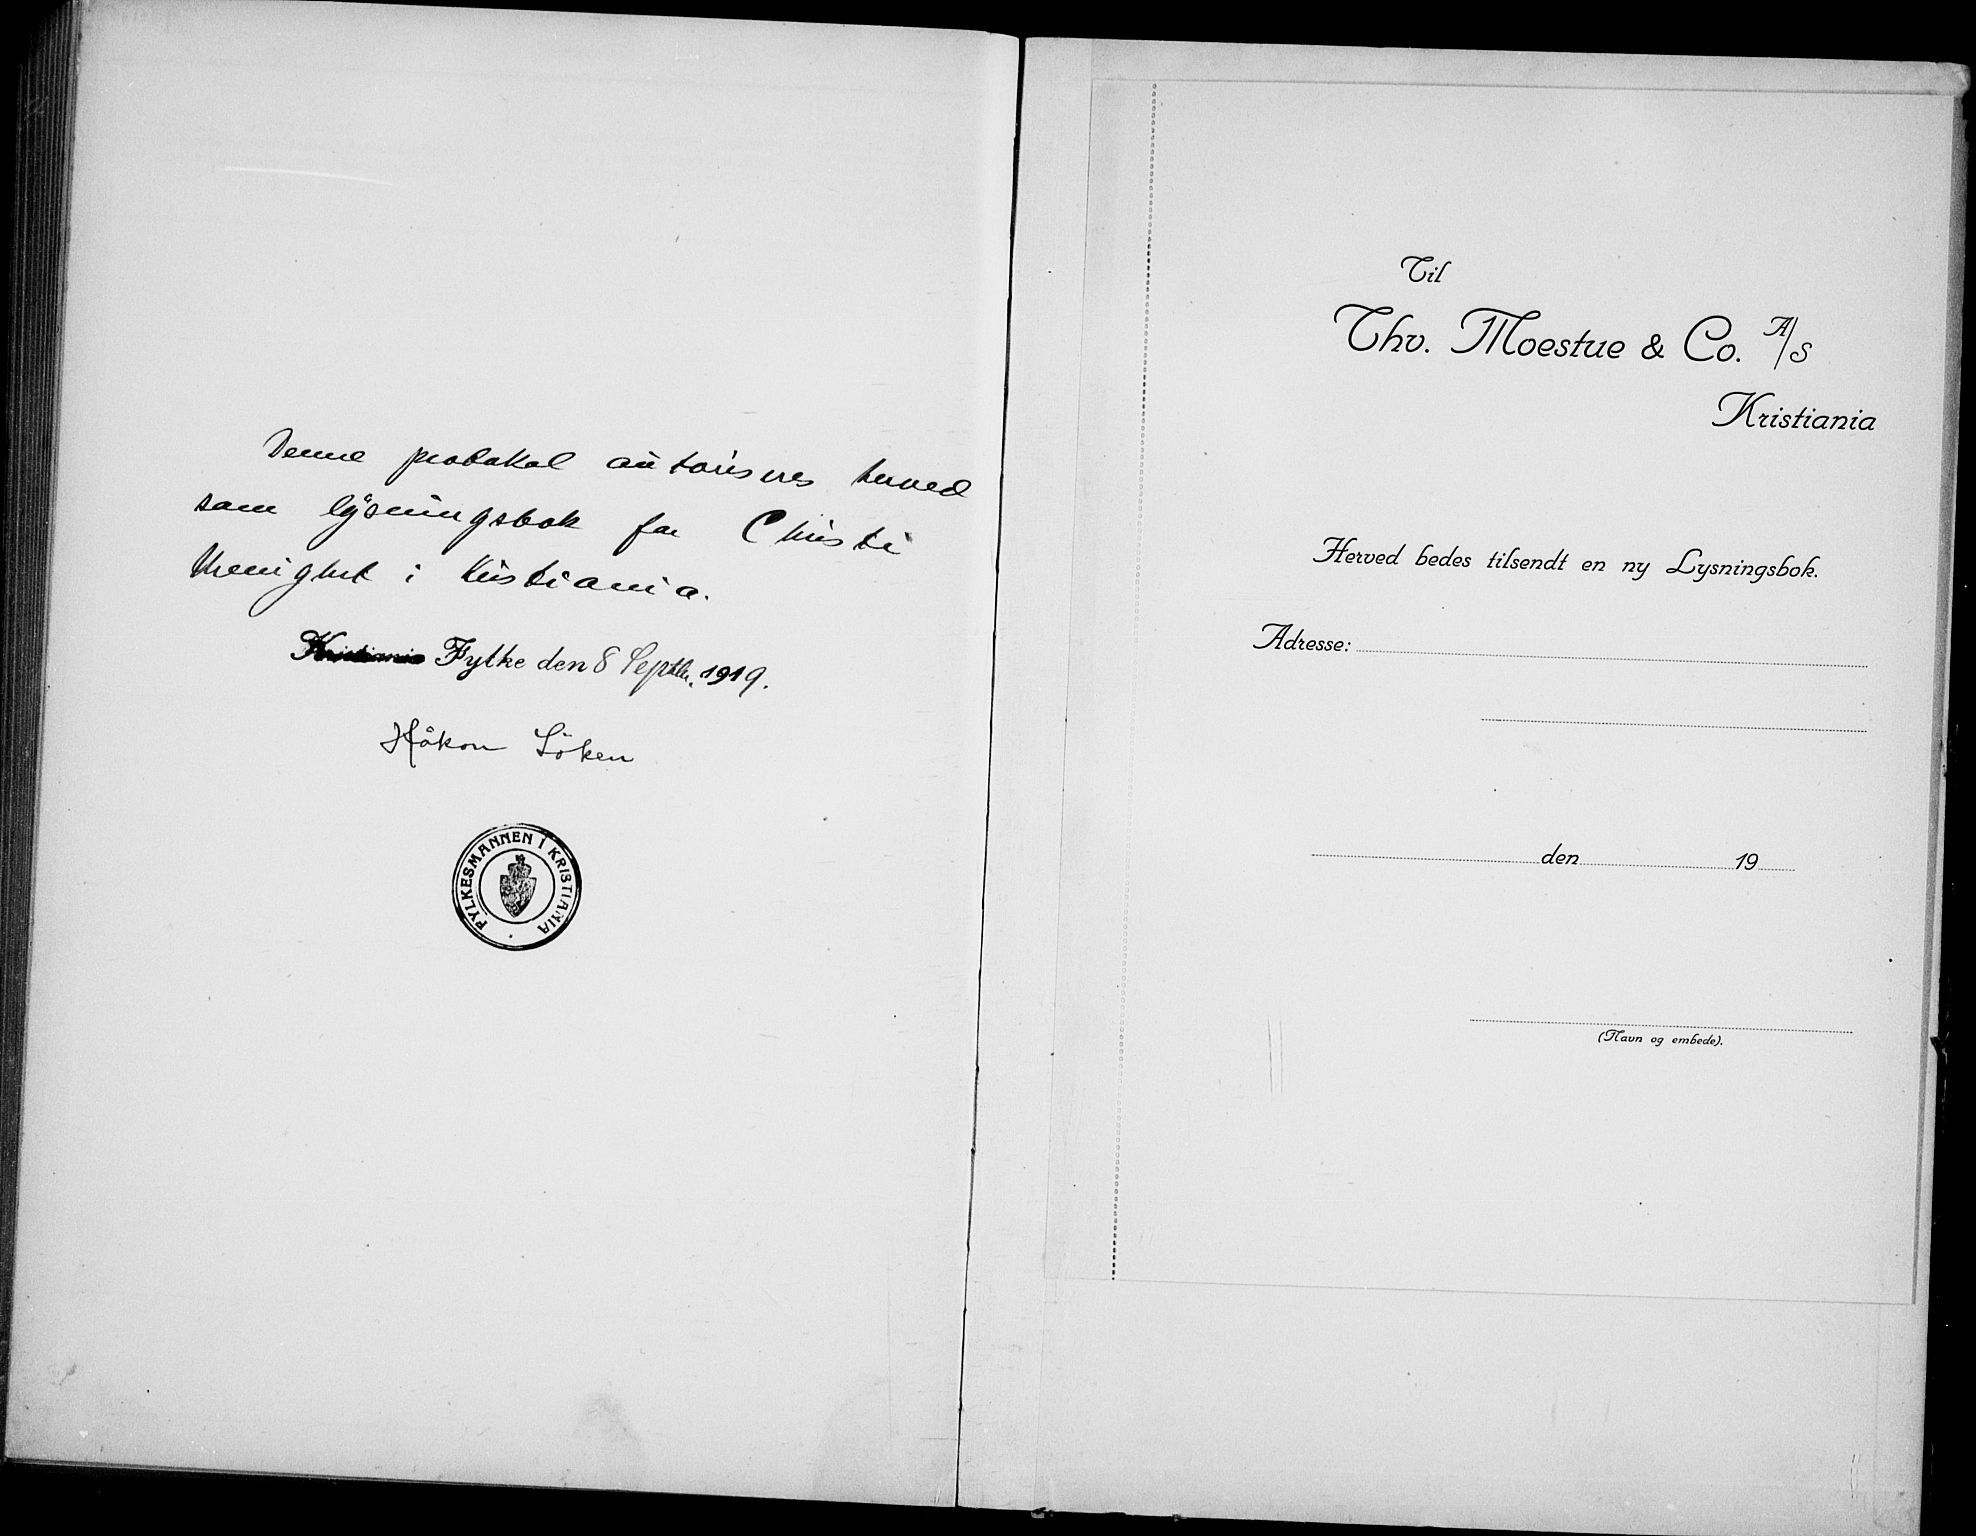 Denne protokol autoriseres herved
som lysningsbok for Christi
Menighet i Kristiania.
Kristiania Fylke den 8 Septbr. 1919.
Håkon Löken
FYLKESMANNEN I KRISTIANIA
Til
Thv. Moestue & Co. A/S
Kristiania
Herved bedes tilsendt en ny Lysningsbok.
Adresse:
den 19
(Navn og embede).